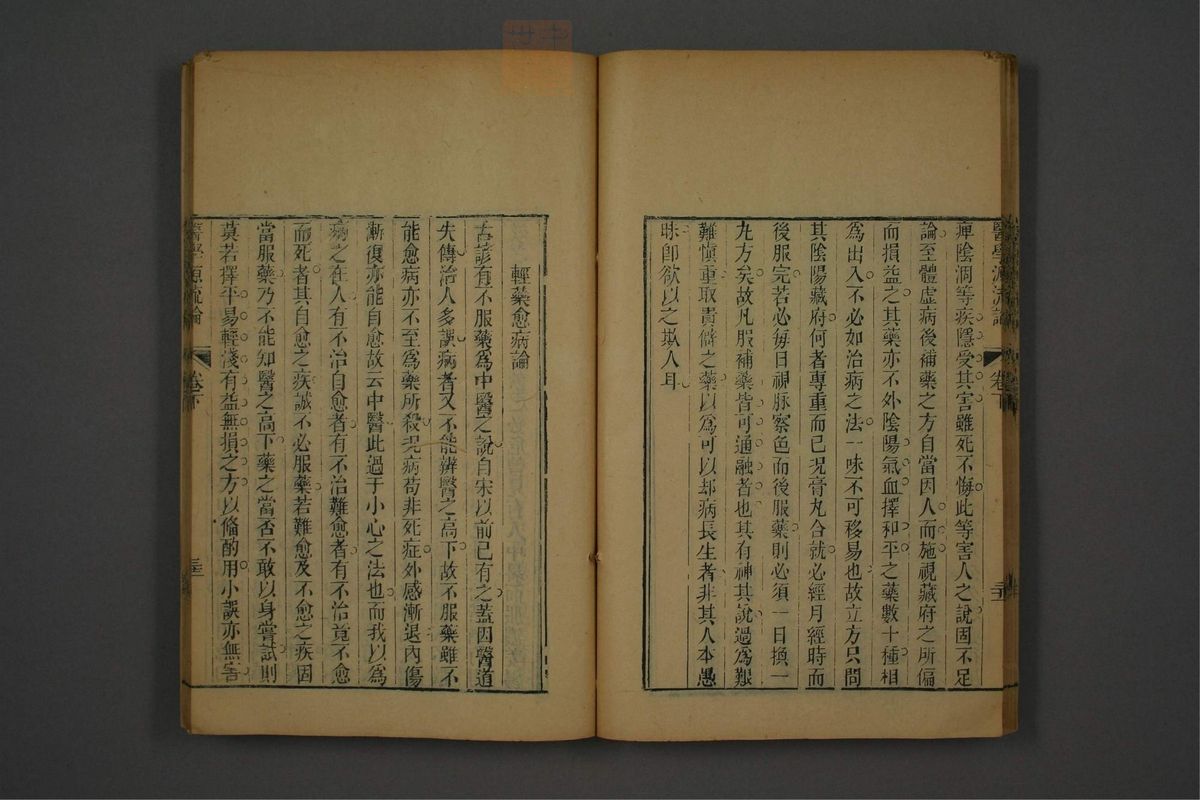 醫學源流論
卷下
痺陰涸等疾隱受其害雖死不悔此等害人之說固不足
論至體虛病後補藥之方自當因人而施視藏府之所偏
而損益之其藥亦不外陰陽氣血擇和平之藥數十種相
為出入不必如治病之法一味不可移易也故立方只問
其陰陽藏府何者專重而已况膏丸合就必經月經時而
後服完若必每日視脉察色而後服藥則必須一日換一
丸方矣故凡服補藥皆可通融者也其有神其說過為艱
難愼重取貴僻之藥以為可以却病長生者非其人本愚
昧卽欲以之欺人耳
輕藥愈病論
古諺有不服藥為中醫之說自宋以前已有之蓋因醫道
失傳治人多誤病者又不能辨醫之高下故不服藥雖不
能愈病亦不至為藥所殺况病苟非死症外感漸退內傷
漸復亦能自愈故云中醫此過于小心之法也而我以為
病之在人有不治自愈者有不治難愈者有不治竟不愈
而死者其自愈之疾誠不必服藥若難愈及不愈之疾固
當服藥乃不能知醫之高下藥之當否不敢以身嘗試則
莫若擇平易輕淺有益無損之方以備酌用小誤亦無害
醫學源流論
卷下